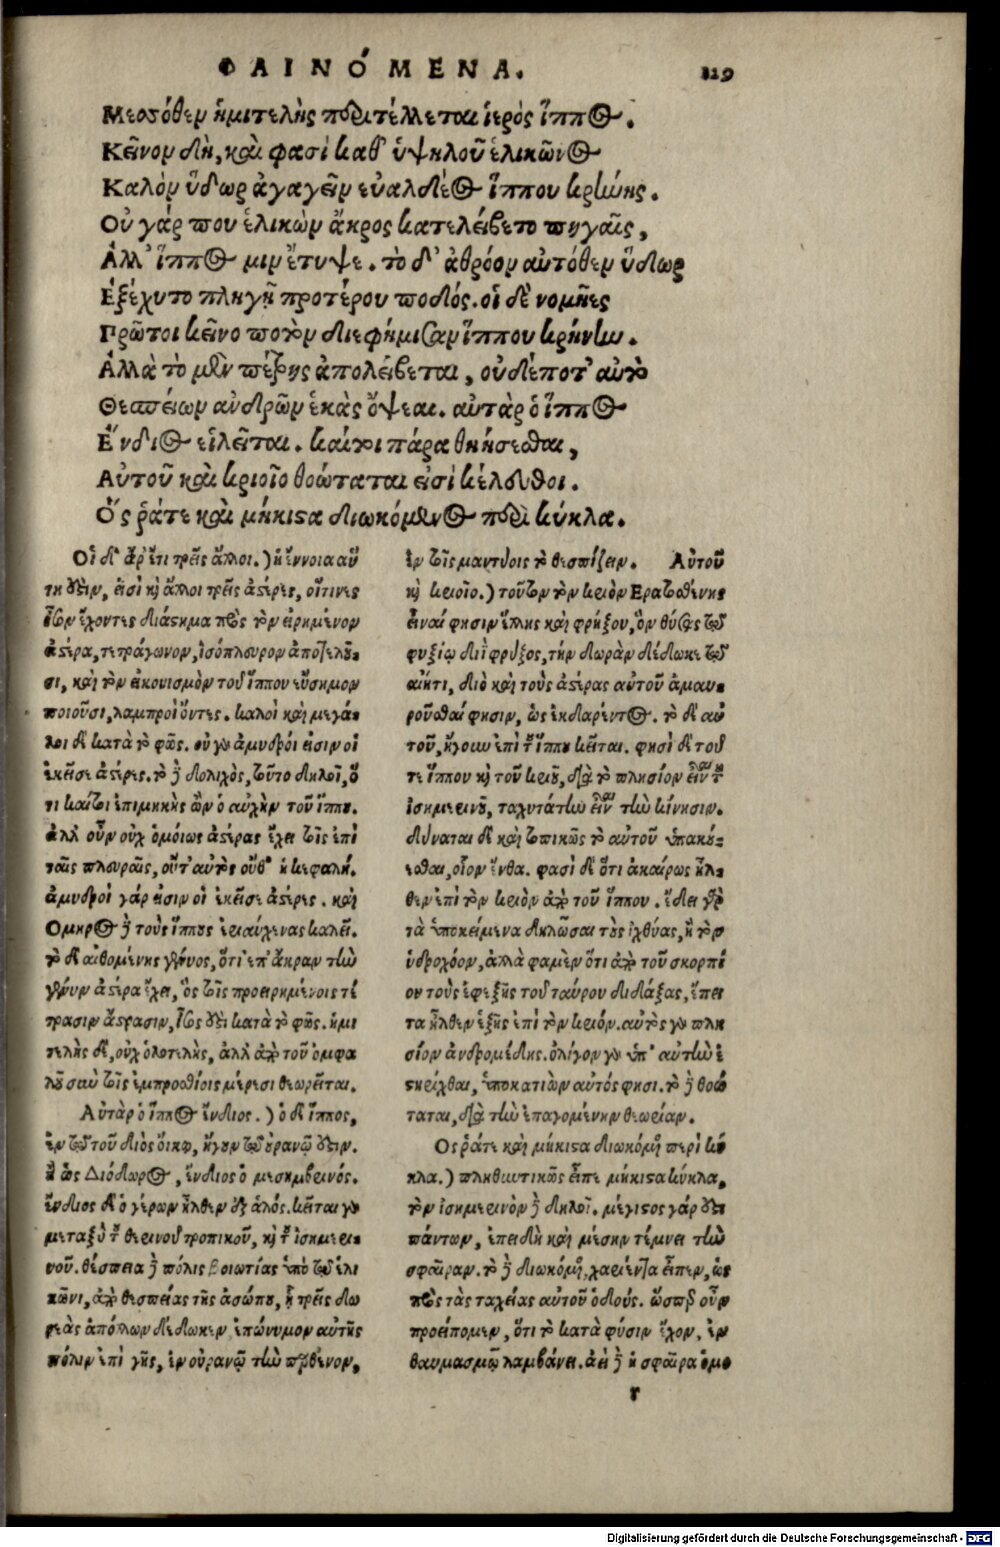 ΦΑΙΝΌΜΕΝΑ. 119
Μεσσόθεν ἡμιτελὴς περιτέλλεται ἱερὸς ἵππος.
Κεῖνον δὴ, καὶ φασὶ καθ' ὑψηλοῦ ἑλικῶνος
Καλὸν ὕδωρ ἀγαγεῖν εὐαλδέος ἵππου κρήνης.
Οὐ γάρ που ἑλικὼν ἄκρος κατελείβετο πηγαῖς,
Ἀλλ' ἵππος μιν ἔτυψε. τὸ δ' ἀθρόον αὐτόθεν ὕδωρ
Ἐξέχυτο πληγῇ προτέρου ποδός. οἱ δὲ νομῆες
Πρῶτοι κεῖνο ποτὸν διεφήμισαν ἵππου κρήνην.
Ἀλλὰ τὸ μὲν πέτρης ἀπολείβεται, οὐδέποτ' αὐτὸ
Θεσπέιων ἀνδρῶν ἑκὰς ὄψεαι. αὐτὰρ ὁ ἵππος
Ἐν διὸς εἱλεῖται. καί τοι πάρα θηήσασθαι,
Αὐτοῦ καὶ κριοῖο θοώταται εἰσὶ κέλευθοι.
Ὅς ῥάτε καὶ μήκιστα διωκόμενος περὶ κύκλα.
Οἱ δ' ἄρ' ἔτι τρεῖς ἄλλοι.) ἡ ἔννοια αὕ
τη ἐστὶν, εἰσὶ καὶ ἄλλοι τρεῖς ἀστέρες, οἵτινες
ἴσον ἔχοντες διάστημα πρὸς τὸν εἰρημένον
ἀστέρα, τετράγωνον, ἰσόπλευρον ἀποτελοῦ-
σι, καὶ τὸν εἰκονισμὸν τοῦ ἵππου εὔσημον
ποιοῦσι, λαμπροὶ ὄντες. καλοὶ καὶ μεγά-
λοι δὲ κατὰ τὸ φῶς. οὐ γὰρ ἀμυδροί εἰσιν οἱ
ἐκεῖσε ἀστέρες. τὸ δὲ δολιχὸς, τοῦτο δηλοῖ, ὅ
τι καίτοι ἐπιμηκὴς ὢν ὁ αὐχὴν τοῦ ἵππου.
ἀλλ' οὖν οὐχ ὁμοίως ἀστέρας ἔχει τοῖς ἐπὶ
ταῖς πλευραῖς, οὔτ' αὐτὸς οὔθ' ἡ κεφαλή.
ἀμυδροὶ γάρ εἰσιν οἱ ἐκεῖσε ἀστέρες. καὶ
Ὅμηρος δὲ τοὺς ἵππους ἐριαύχενας καλεῖ.
τὸ δὲ αἰθομένης γένυος, ὅτι ἐπ' ἄκραν τὴν
γένυν ἀστέρα ἔχει, ὃς τοῖς προειρημένοις τέ
τρασιν ἄστρασιν, ἴσος ἐστὶ κατὰ τὸ φῶς. ἡμι
τελὴς δὲ, οὐχ ὁλοτελὴς, ἀλλ' ἀπὸ τοῦ ὀμφα
λοῦ σὺν τοῖς ἐμπροσθίοις μέρεσι θεωρεῖται.
Αὐτὰρ ὁ ἵππος ἔνδιος.) ὁ δὲ ἵππος,
ἐν τῷ τοῦ διὸς οἴκῳ, ἤγουν τῷ οὐρανῷ ἐστιν.
ἢ ὡς Διόδωρος, ἔνδιος ὁ μεσημβρινός.
ἔνδιος δ' ὁ γέρων ἦλθεν ἐξ ἁλός. κεῖται γὰρ
μεταξὺ τοῦ θερινοῦ τροπικοῦ, καὶ τοῦ ἰσημερι-
νοῦ. θέσπεια δὲ πόλις βοιωτίας ὑπὸ τῷ ἑλι
κῶνι, ἀπὸ θεσπείας τῆς ἀσώπου, ᾗ τρεῖς δω
ρεὰς ἀπόλλων δέδωκεν, ἐπώνυμον αὐτῆς
πόλιν ἐπὶ γῆς, ἐν οὐρανῷ τὴν παρθένον,
ἐν τοῖς μαντείοις τὸ θεσπίζειν. Αὐτοῦ
καὶ κριοῖο.) τοῦτον τὸν κριὸν Ἐρατοσθένης
εἶναί φησιν ἕλλης καὶ φρίξου, ὃν θύσας τῷ
φυξίῳ διῒ φρύξος, τὴν δωρὰν δέδωκε τῷ
αἰήτι, διὸ καὶ τοὺς ἀστέρας αὐτοῦ ἀμαυ-
ροῦσθαί φησιν, ὡς ἐκδαρέντος. τὸ δὲ αὐ
τοῦ, ἤγουν ἐπὶ τοῦ ἵππου κεῖται. φησὶ δὲ τοῦ
τε ἵππου καὶ τοῦ κριοῦ, διὰ τὸ πλησίον εἶναι τοῦ
ἰσημερινοῦ, ταχυτάτην εἶναι τὴν κίνησιν.
δύναται δὲ καὶ τοπικῶς τὸ αὐτοῦ ὑπακού-
εσθαι, οἷον ἔνθα. φασὶ δὲ ὅτι ἀκαίρως ἦλ-
θεν ἐπὶ τὸν κριὸν ἀπὸ τοῦ ἵππου. ἔδει γὰρ
τὰ ὑποκείμενα δηλῶσαι τοὺς ἰχθύας, ἢ τὸν
ὑδροχόον, ἀλλὰ φαμὲν ὅτι ἀπὸ τοῦ σκορπί
ου τοὺς ἐφεξῆς τοῦ ταύρου διδάξας, ἔπει
τα ἦλθεν ἑξῆς ἐπὶ τὸν κριόν. αὐτὸς γὰρ πλη
σίον ἀνδρομέδης. ὀλίγον γὰρ ὑπ' αὐτὴν ἐ
στηρίχθαι, ὑποκατιὼν αὐτός φησι. τὸ δὲ θοώ
ταται, διὰ τὴν ἐπαγομένην θεωρίαν.
Ὅς ῥάτε καὶ μήκιστα διωκόμενος περὶ κύ
κλα.) πληθυντικῶς εἶπε μήκιστα κύκλα,
τὸν ἰσημερινὸν δὲ δηλοῖ. μέγιστος γάρ ἐστι
πάντων, ἐπειδὴ καὶ μέσην τέμνει τὴν
σφαῖραν. τὸ δὲ διωκόμενος, χαρίεντα εἶπεν, ὡς
πρὸς τὰς ταχείας αὐτοῦ ὁδούς. ὥσπερ οὖν
προείπομεν, ὅτι τὸ κατὰ φύσιν ἔχον, ἐν
θαυμασμῷ λαμβάνει. ἀεὶ δὲ ἡ σφαῖρα ὁμο
r
Digitalisierung gefördert durch die Deutsche Forschungsgemeinschaft - DFG